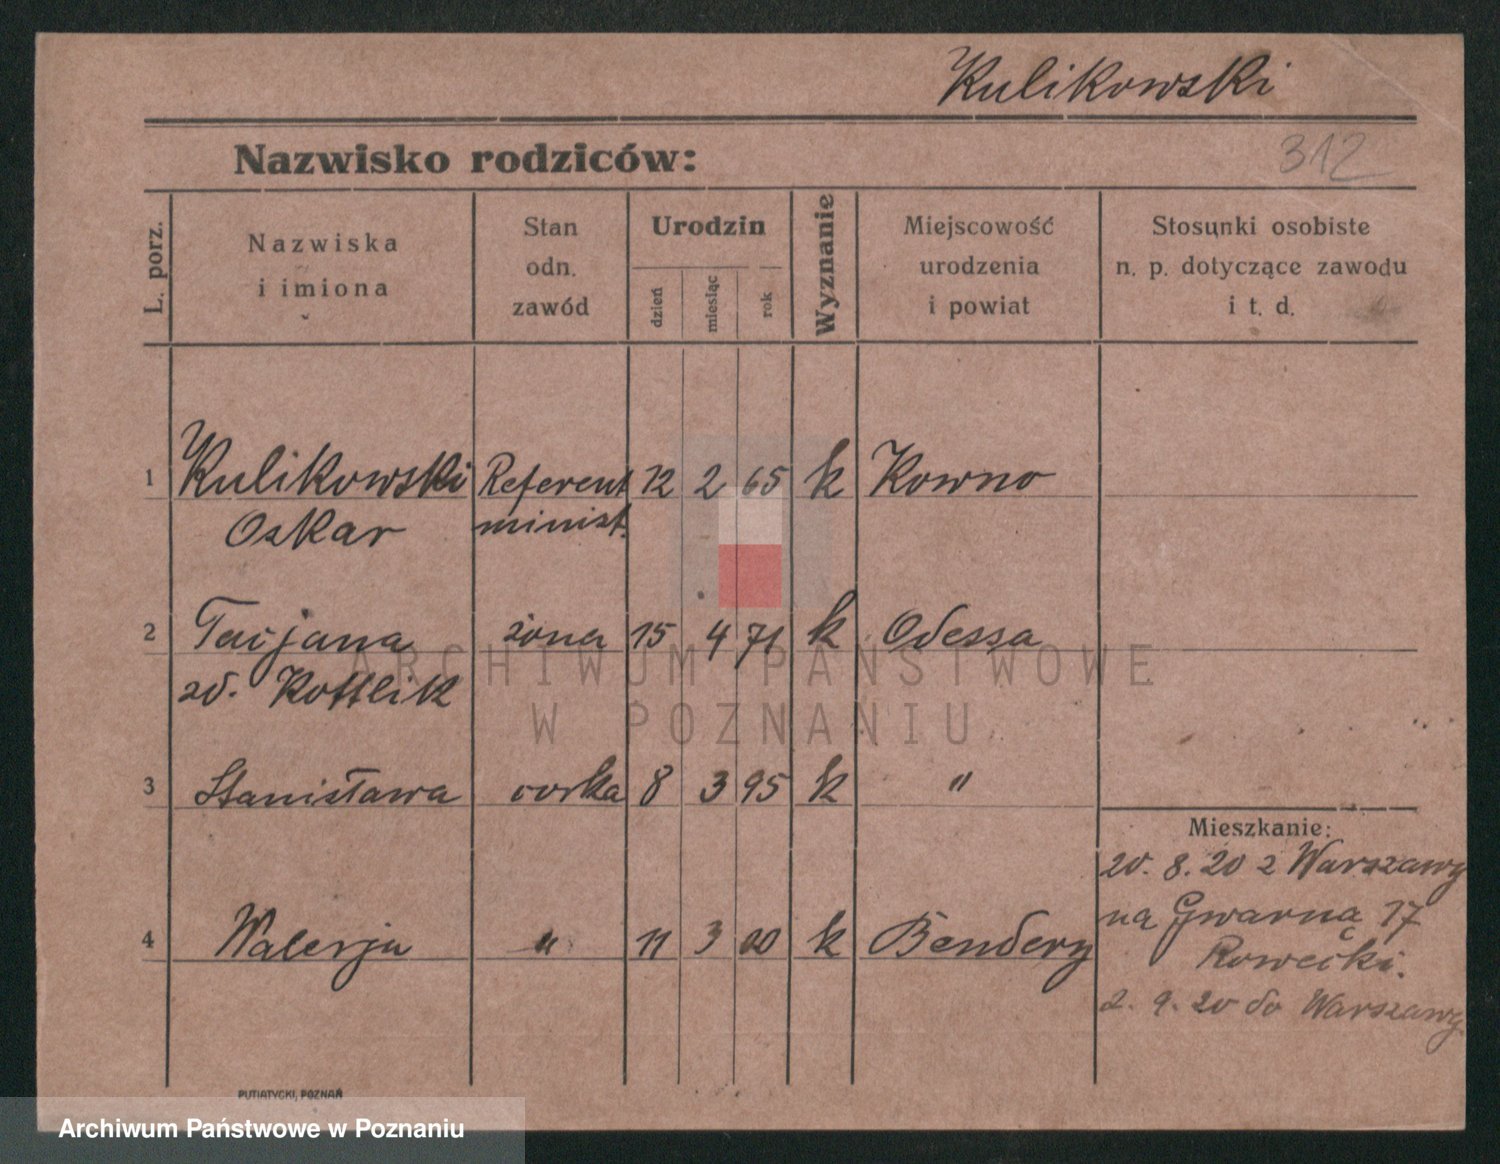 Kulikowski
312
Nazwisko rodziców:
L. porz.
Nazwiska
i imiona
Stan
odn.
zawód
Urodzin
dzień
miesiąc
rok
Wyznanie
Miejscowość
urodzenia
i powiat
Stosunki osobiste
n. p. dotyczące zawodu
i t. d.
1 Kulikowski Referent 12 2 65 k Kowno
Oskar minist.
2 Tacjana żona 15 4 71 k Odessa
zd. Kottlik
3 Stanisława corka 8 3 95 k "
4 Walerja " 11 3 00 k Bendery
Mieszkanie:
20. 8. 20 z Warszawy
na Gwarną 17
Rowecki.
2. 9. 20 do Warszawy
PUTIATYCKI, POZNAŃ
ARCHIWUM PAŃSTWOWE
W POZNANIU
Archiwum Państwowe w Poznaniu